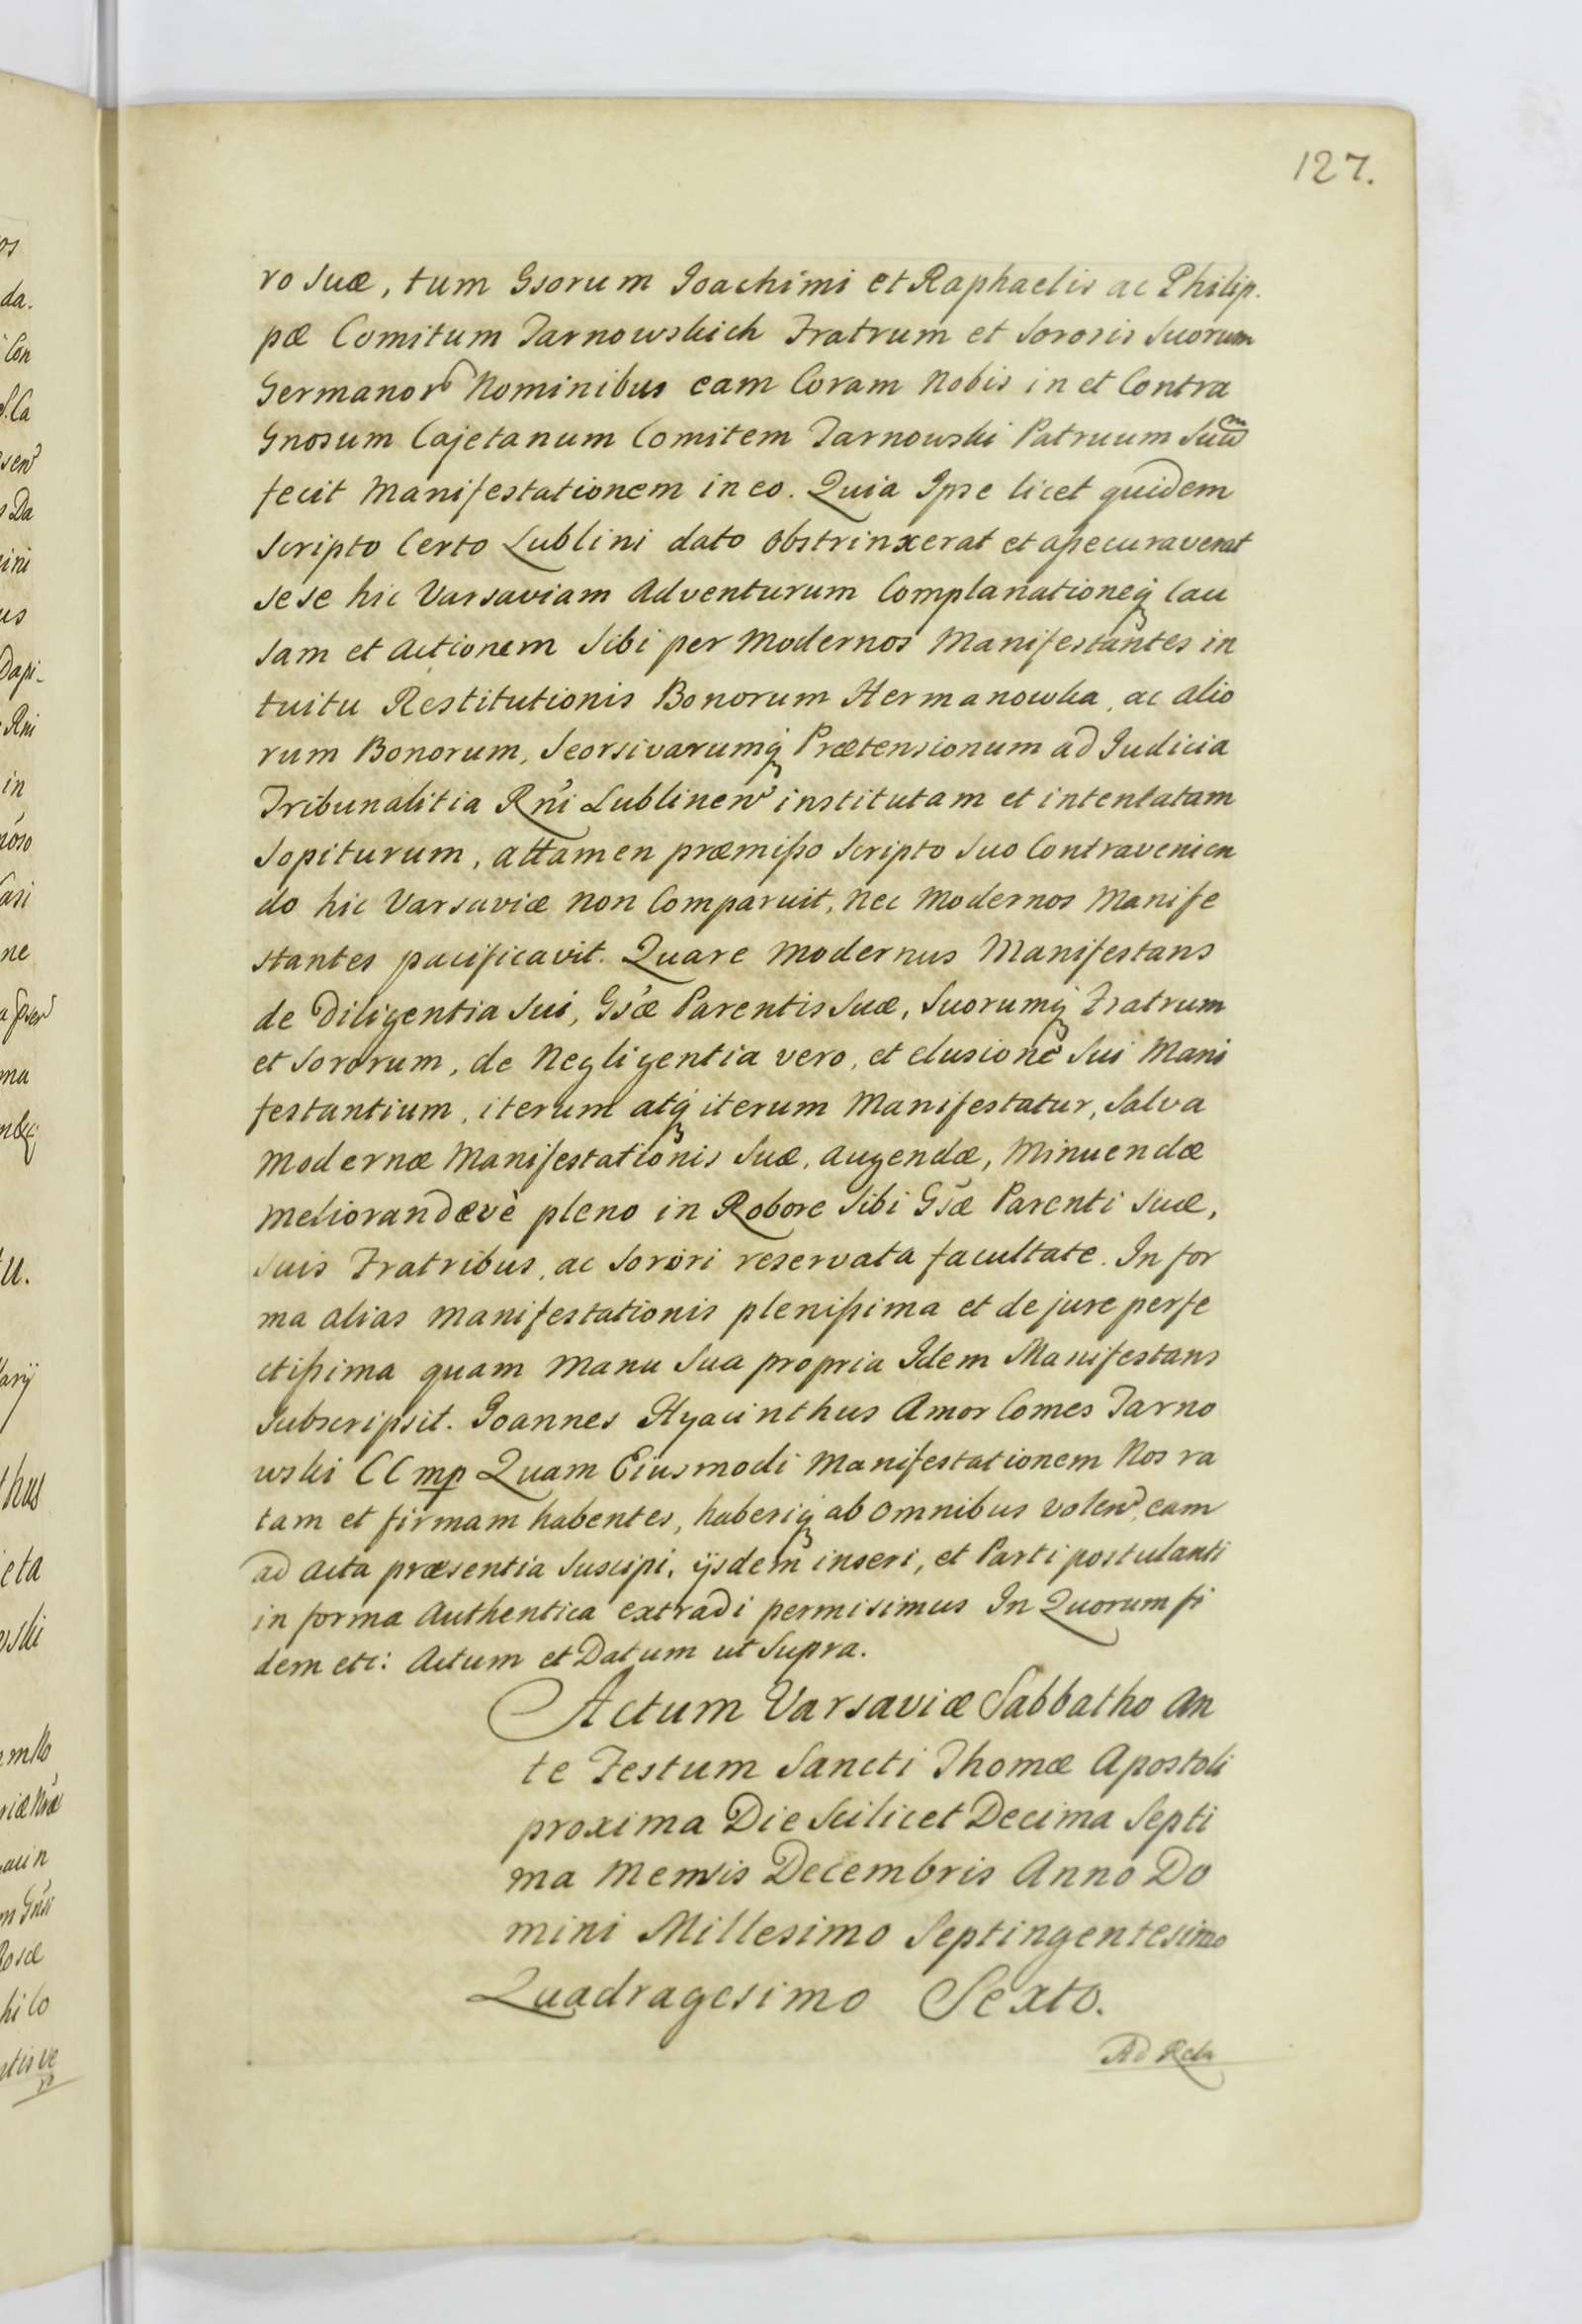 127.
ro suæ, tum Gsorum Joachimi et Raphaelis ac Philip.
pæ Comitum Tarnowskich Fratrum et Sororis Suorum
Germanor Nominibus eam Coram Nobis in et Contra
Gnosum Cajetanum Comitem Tarnowski Patruum Suum
fecit Manifestationem in eo. Quia Ipse licet quidem
Scripto Certo Lublini dato obstrinxerat et assecuraverat
sese hic Varsaviam Adventurum Complanationeq Cau
sam et Actionem Sibi per Modernos Manifestantes in
tuitu Restitutionis Bonorum Hermanowka, ac alio
rum Bonorum, Seorsivarumq Prætensionum ad Judicia
Tribunalitia Rni Lublinen institutam et intentatam
Sopiturum, attamen præmisso Scripto Suo Contravenien
do hic Varsaviæ non Comparuit, nec Modernos Manife
stantes pacificavit. Quare Modernus Manifestans
de Diligentia Sui, Gsæ Parentis Suæ, Suorumq Fratrum
et Sororum, de Negligentia vero, et elusione Sui Mani
festantium, iterum atq iterum Manifestatur, Salva
Modernæ Manifestationis Suæ, augendæ, Minuendæ
meliorandævè pleno in Robore Sibi Gsæ Parenti Suæ,
Suis Fratribus, ac Sorori reservata facultate. In for
ma alias manifestationis plenissima et de jure perfe
ctissima quam Manu Sua propria Idem Manifestans
Subscripsit. Joannes Hyacinthus Amor Comes Tarno
wski CC mp Quam Eiusmodi Manifestationem Nos ra
tam et firmam habentes, haberiq ab omnibus volen, eam
ad Acta præsentia Suscipi, ijsdem inseri, et Parti postulanti
in forma Authentica extradi permisimus In Quorum fi
dem etc: Actum et Datum ut Supra.
Actum Varsaviæ Sabbatho An
te Festum Sancti Thomæ Apostoli
proxima Die Scilicet Decima Septi
ma Mensis Decembris Anno Do
mini Millesimo Septingentesimo
Quadragesimo Sexto.
Ad Rela